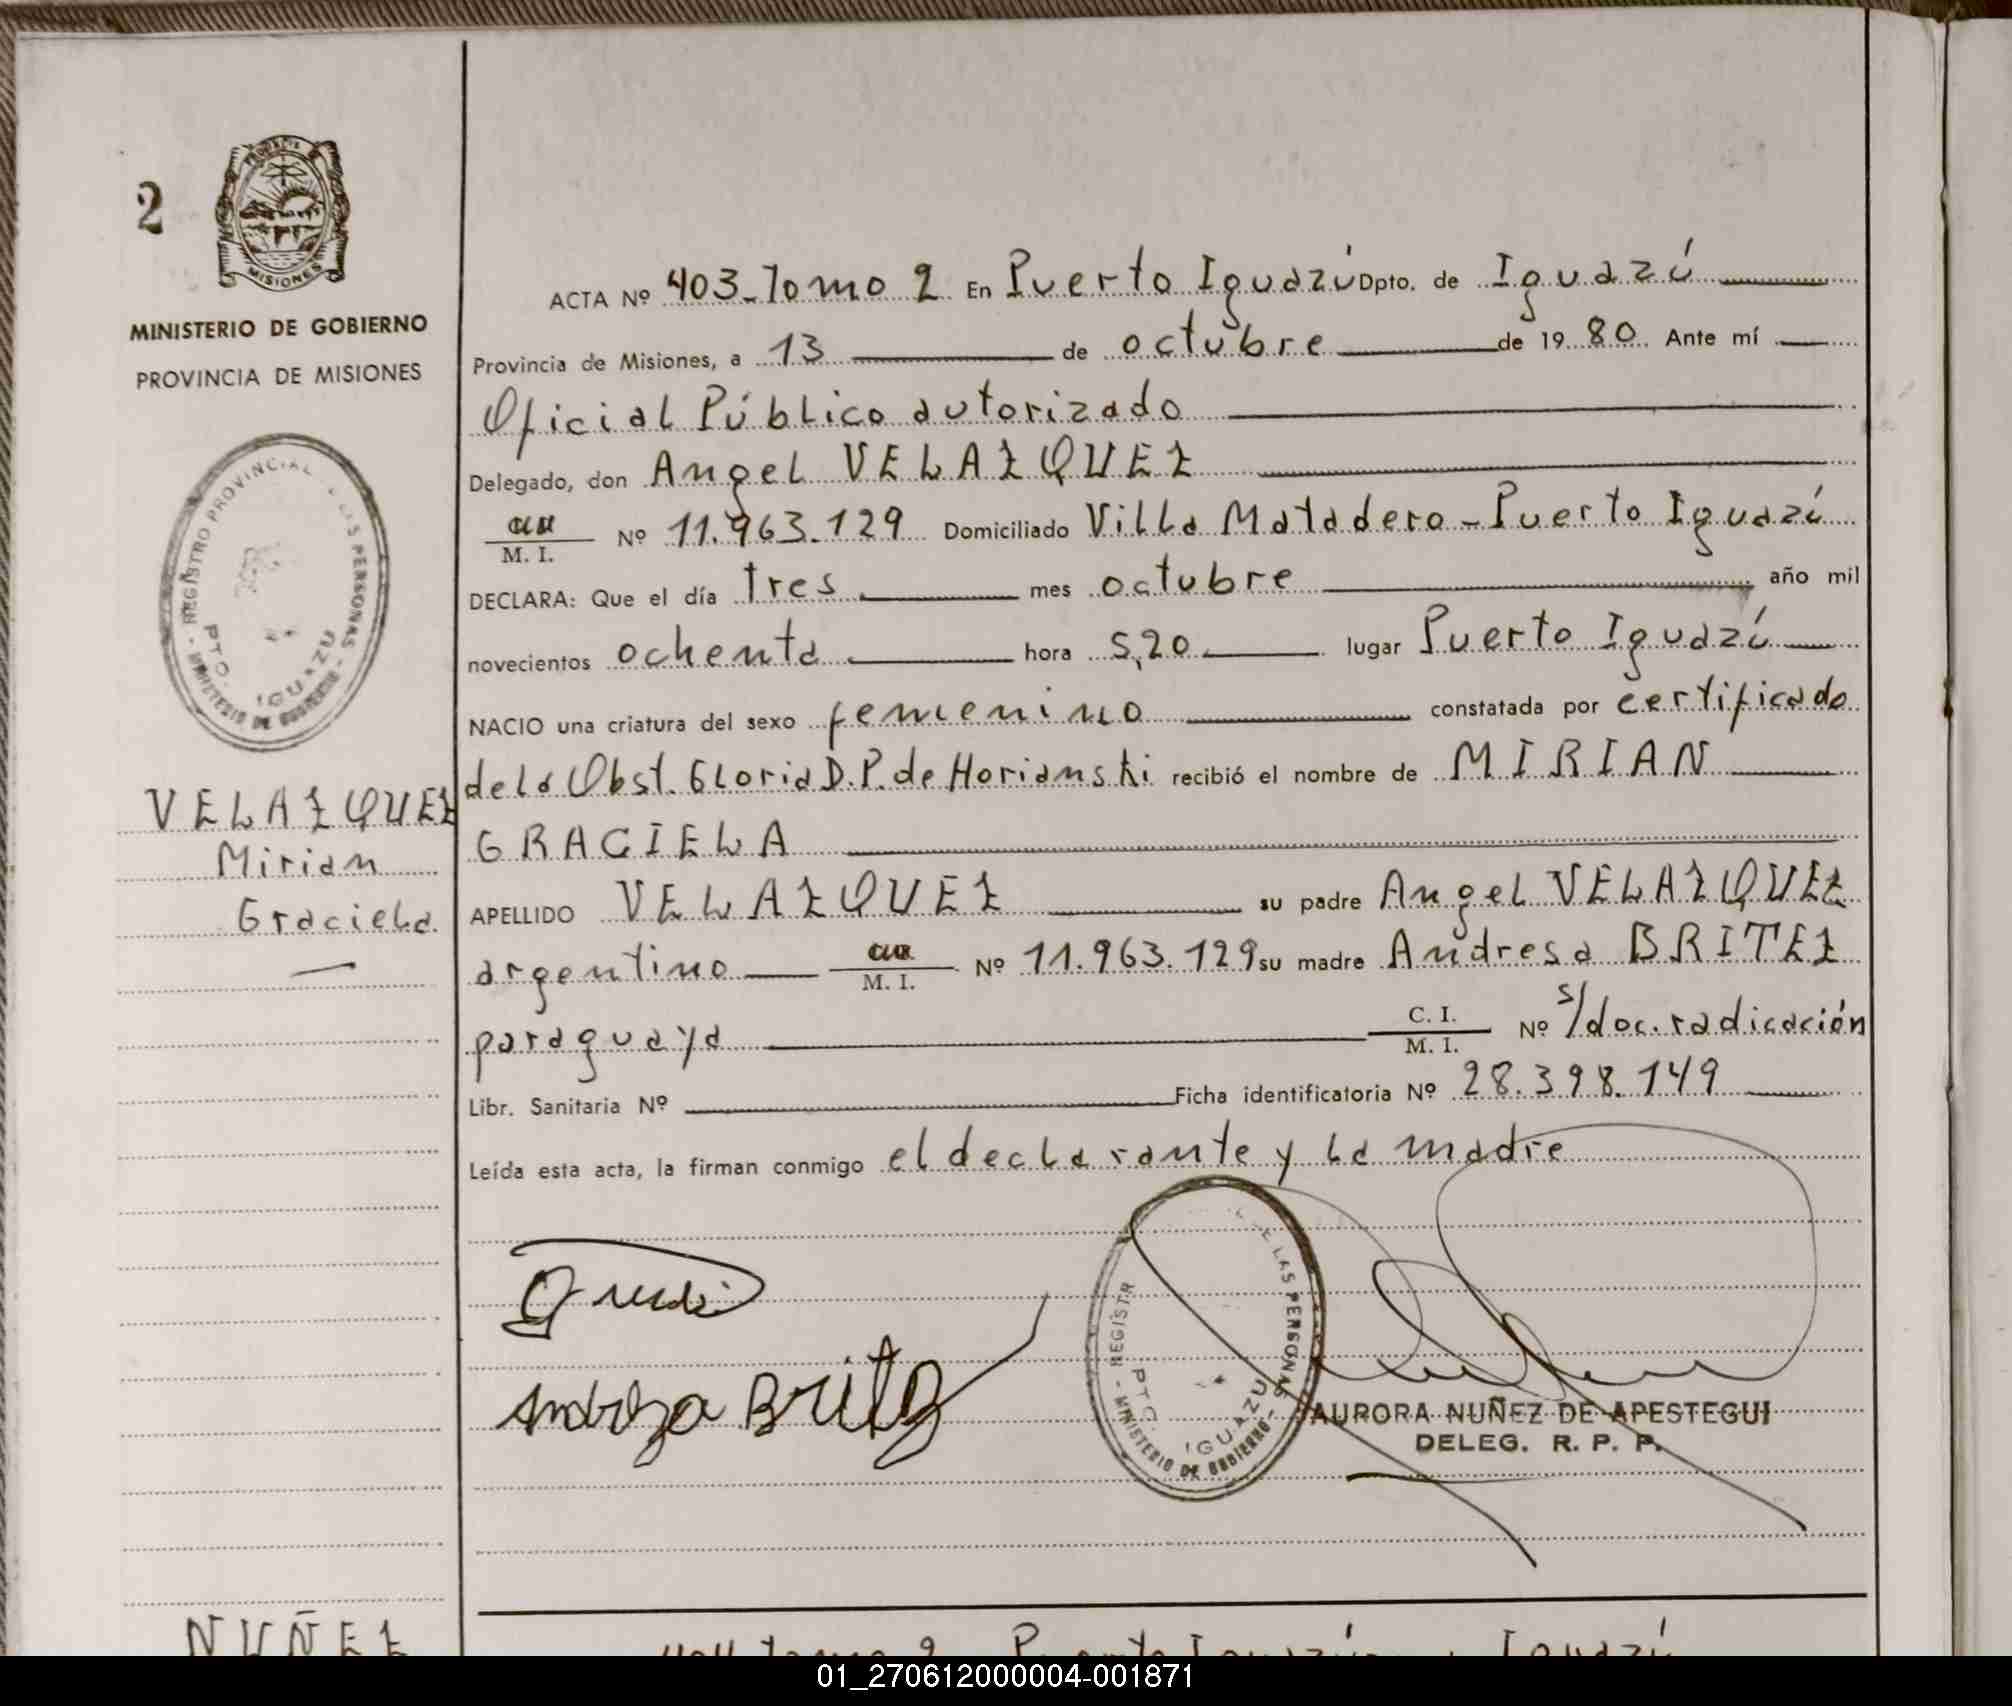 2
MISIONES
MINISTERIO DE GOBIERNO
PROVINCIA DE MISIONES
REGISTRO PROVINCIAL DE LAS PERSONAS
PTO. IGUAZU
MINISTERIO DE GOBIERNO
VELAZQUEZ
Mirian
Graciela
ACTA Nº 403-Tomo 2 En Puerto Iguazú Dpto. de Iguazú
Provincia de Misiones, a 13 de octubre de 19 80 Ante mí
Oficial Público autorizado
Delegado, don Angel VELAZQUEZ
M. I. Nº 11.963.129 Domiciliado Villa Matadero - Puerto Iguazú
DECLARA: Que el día tres mes octubre año mil
novecientos ochenta hora 5,20 lugar Puerto Iguazú
NACIO una criatura del sexo femenino constatada por certificado
de la Obst. Gloria D.P. de Horianski recibió el nombre de MIRIAN
GRACIELA
APELLIDO VELAZQUEZ su padre Angel VELAZQUEZ
argentino M. I. Nº 11.963.129 su madre Andresa BRITEZ
paraguaya C. I. M. I. Nº s/doc. radicación
Libr. Sanitaria Nº Ficha identificatoria Nº 28.398.149
Leída esta acta, la firman conmigo el declarante y la madre
REGISTR DE LAS PERSONAS
PTO. IGUAZU
MINISTERIO DE GOBIERNO
AURORA NUÑEZ DE APESTEGUI
DELEG. R. P. P.
NUÑEZ
404 Tomo 2 Puerto Iguazú Iguazú
01_270612000004-001871